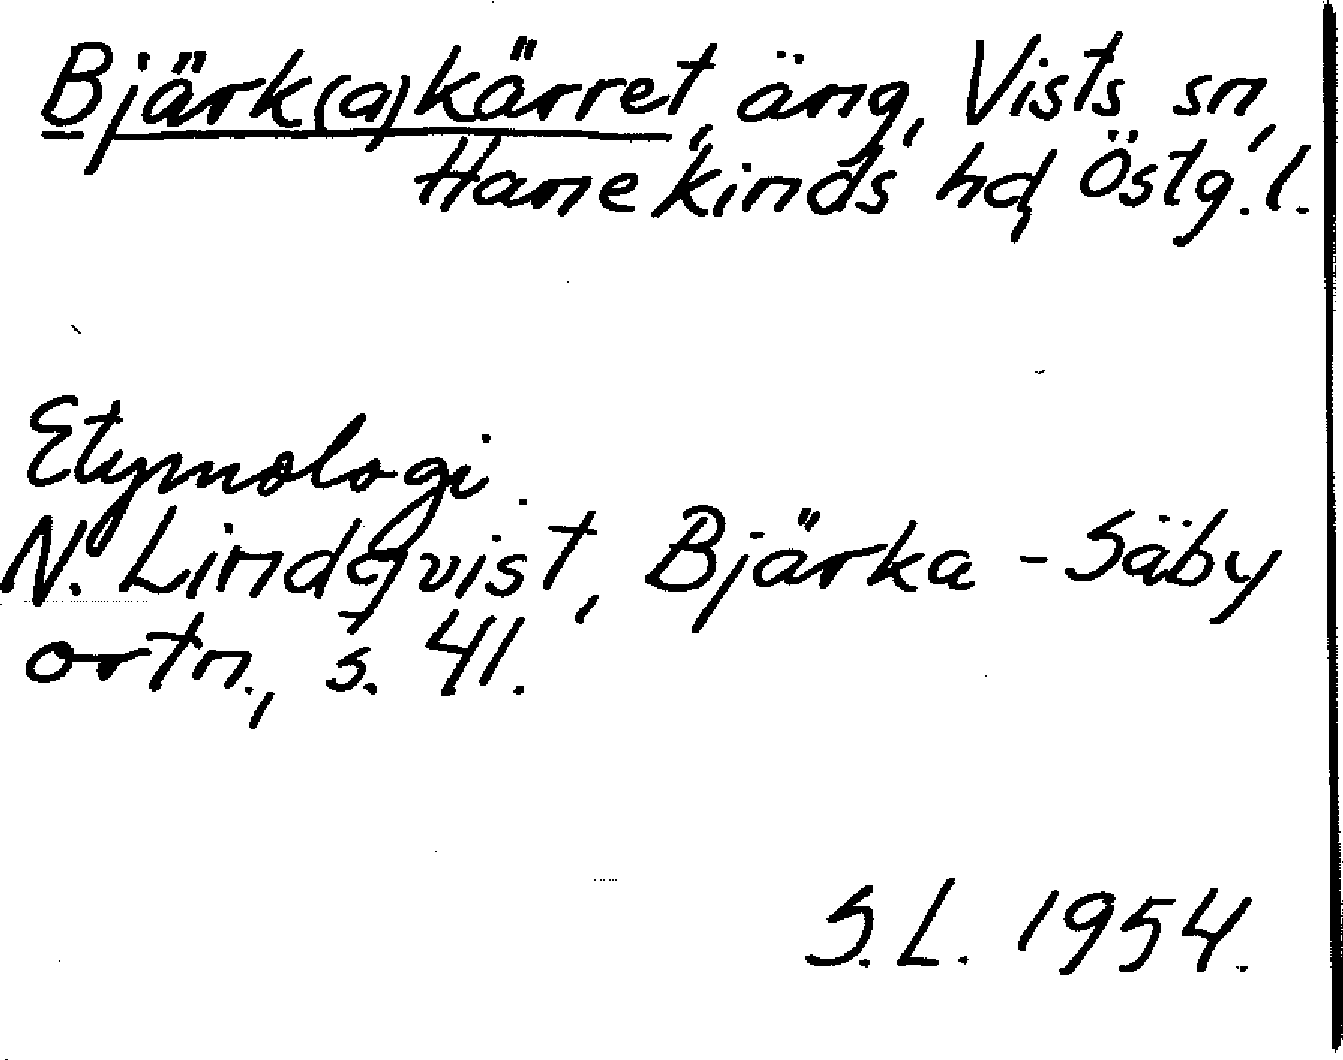 Bjärk(a)kärret, äng, Vists sn,
Hanekinds hd, Östg. l.
Etymologi.
N. Lindqvist, Bjärka-Säby
ortn., s. 41.
S.L. 1954.